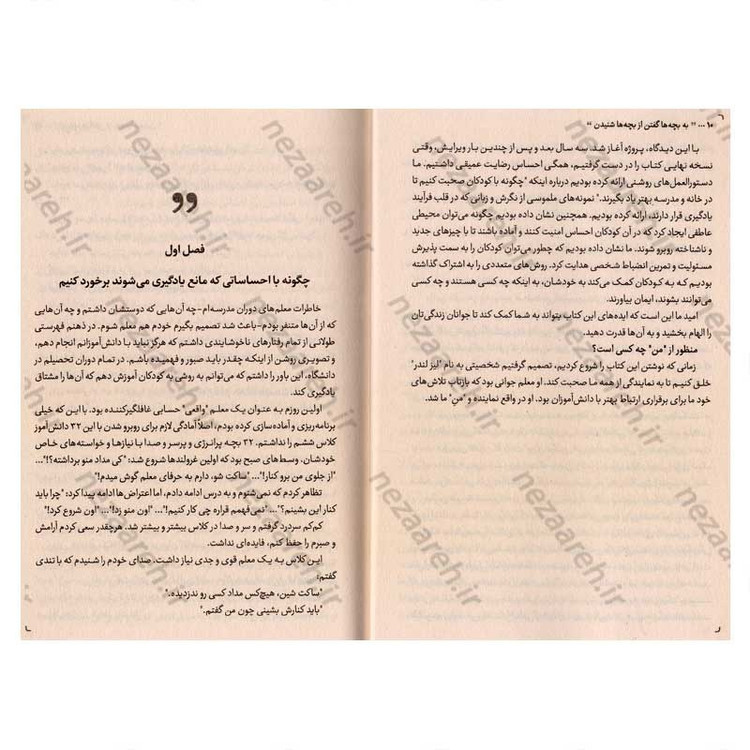 ۱۰ ... " به بچه‌ها گفتن از بچه‌ها شنیدن "
با این دیدگاه، پروژه آغاز شد. سه سال بعد و پس از چندین بار ویرایش، وقتی
نسخه نهایی کتاب را در دست گرفتیم، همگی احساس رضایت عمیقی داشتیم. ما
دستورالعمل‌های روشنی ارائه کرده بودیم درباره اینکه "چگونه با کودکان صحبت کنیم تا
در خانه و مدرسه بهتر یاد بگیرند." نمونه‌های ملموسی از نگرش و زبانی که در قلب فرآیند
یادگیری قرار دارند، ارائه کرده بودیم. همچنین نشان داده بودیم چگونه می‌توان محیطی
عاطفی ایجاد کرد که در آن کودکان احساس امنیت کنند و آماده باشند تا با چیزهای جدید
و ناشناخته روبرو شوند. ما نشان داده بودیم که چطور می‌توان کودکان را به سمت پذیرش
مسئولیت و تمرین انضباط شخصی هدایت کرد. روش‌های متعددی را به اشتراک گذاشته
بودیم که به کودکان کمک می‌کند به خودشان، به اینکه چه کسی هستند و چه کسی
می‌توانند بشوند، ایمان بیاورند.
امید ما این است که ایده‌های این کتاب بتواند به شما کمک کند تا جوانان زندگی‌تان
را الهام بخشید و به آن‌ها قدرت دهید.
منظور از "من" چه کسی است؟
زمانی که نوشتن این کتاب را شروع کردیم، تصمیم گرفتیم شخصیتی به نام "لیز لندر"
خلق کنیم تا به نمایندگی از همه ما صحبت کند. او معلم جوانی بود که بازتاب تلاش‌های
خود ما برای برقراری ارتباط بهتر با دانش‌آموزان بود. او در واقع نماینده و "منِ" ما شد.
فصل اول
چگونه با احساساتی که مانع یادگیری می‌شوند برخورد کنیم
خاطرات معلم‌های دوران مدرسه‌ام-چه آن‌هایی که دوستشان داشتم و چه آن‌هایی
که از آن‌ها متنفر بودم-باعث شد تصمیم بگیرم خودم هم معلم شوم. در ذهنم فهرستی
طولانی از تمام رفتارهای ناخوشایندی داشتم که هرگز نباید با دانش‌آموزانم انجام دهم،
و تصویری روشن از اینکه چقدر باید صبور و فهمیده باشم. در تمام دوران تحصیلم در
دانشگاه، این باور را داشتم که می‌توانم به روشی به کودکان آموزش دهم که آن‌ها را مشتاق
یادگیری کند.
اولین روزم به عنوان یک معلم "واقعی" حسابی غافلگیرکننده بود. با این که خیلی
برنامه‌ریزی و آماده‌سازی کرده بودم، اصلاً آمادگی لازم برای روبرو شدن با این ۳۲ دانش‌آموز
کلاس ششم را نداشتم. ۳۲ بچه پرانرژی و پرسر و صدا با نیازها و خواسته‌های خاص
خودشان. وسط‌های صبح بود که اولین غرولندها شروع شد: "کی مداد منو برداشته؟!"...
"از جلوی من برو کنار!"... "ساکت شو، دارم به حرفای معلم گوش میدم!"
تظاهر کردم که نمی‌شنوم و به درس ادامه دادم، اما اعتراض‌ها ادامه پیدا کرد: "چرا باید
کنار این بشینم؟"... "نمی‌فهمم قراره چی کار کنیم!"... "اون منو زد!"... "اون شروع کرد!"
کم‌کم سردرد گرفتم و سر و صدا در کلاس بیشتر و بیشتر شد. هرچقدر سعی کردم آرامش
و صبرم را حفظ کنم، فایده‌ای نداشت.
این کلاس به یک معلم قوی و جدی نیاز داشت. صدای خودم را شنیدم که با تندی
گفتم:
"ساکت شین، هیچ‌کس مداد کسی رو ندزدیده."
"باید کنارش بشینی چون من گفتم."
nezaareh.ir